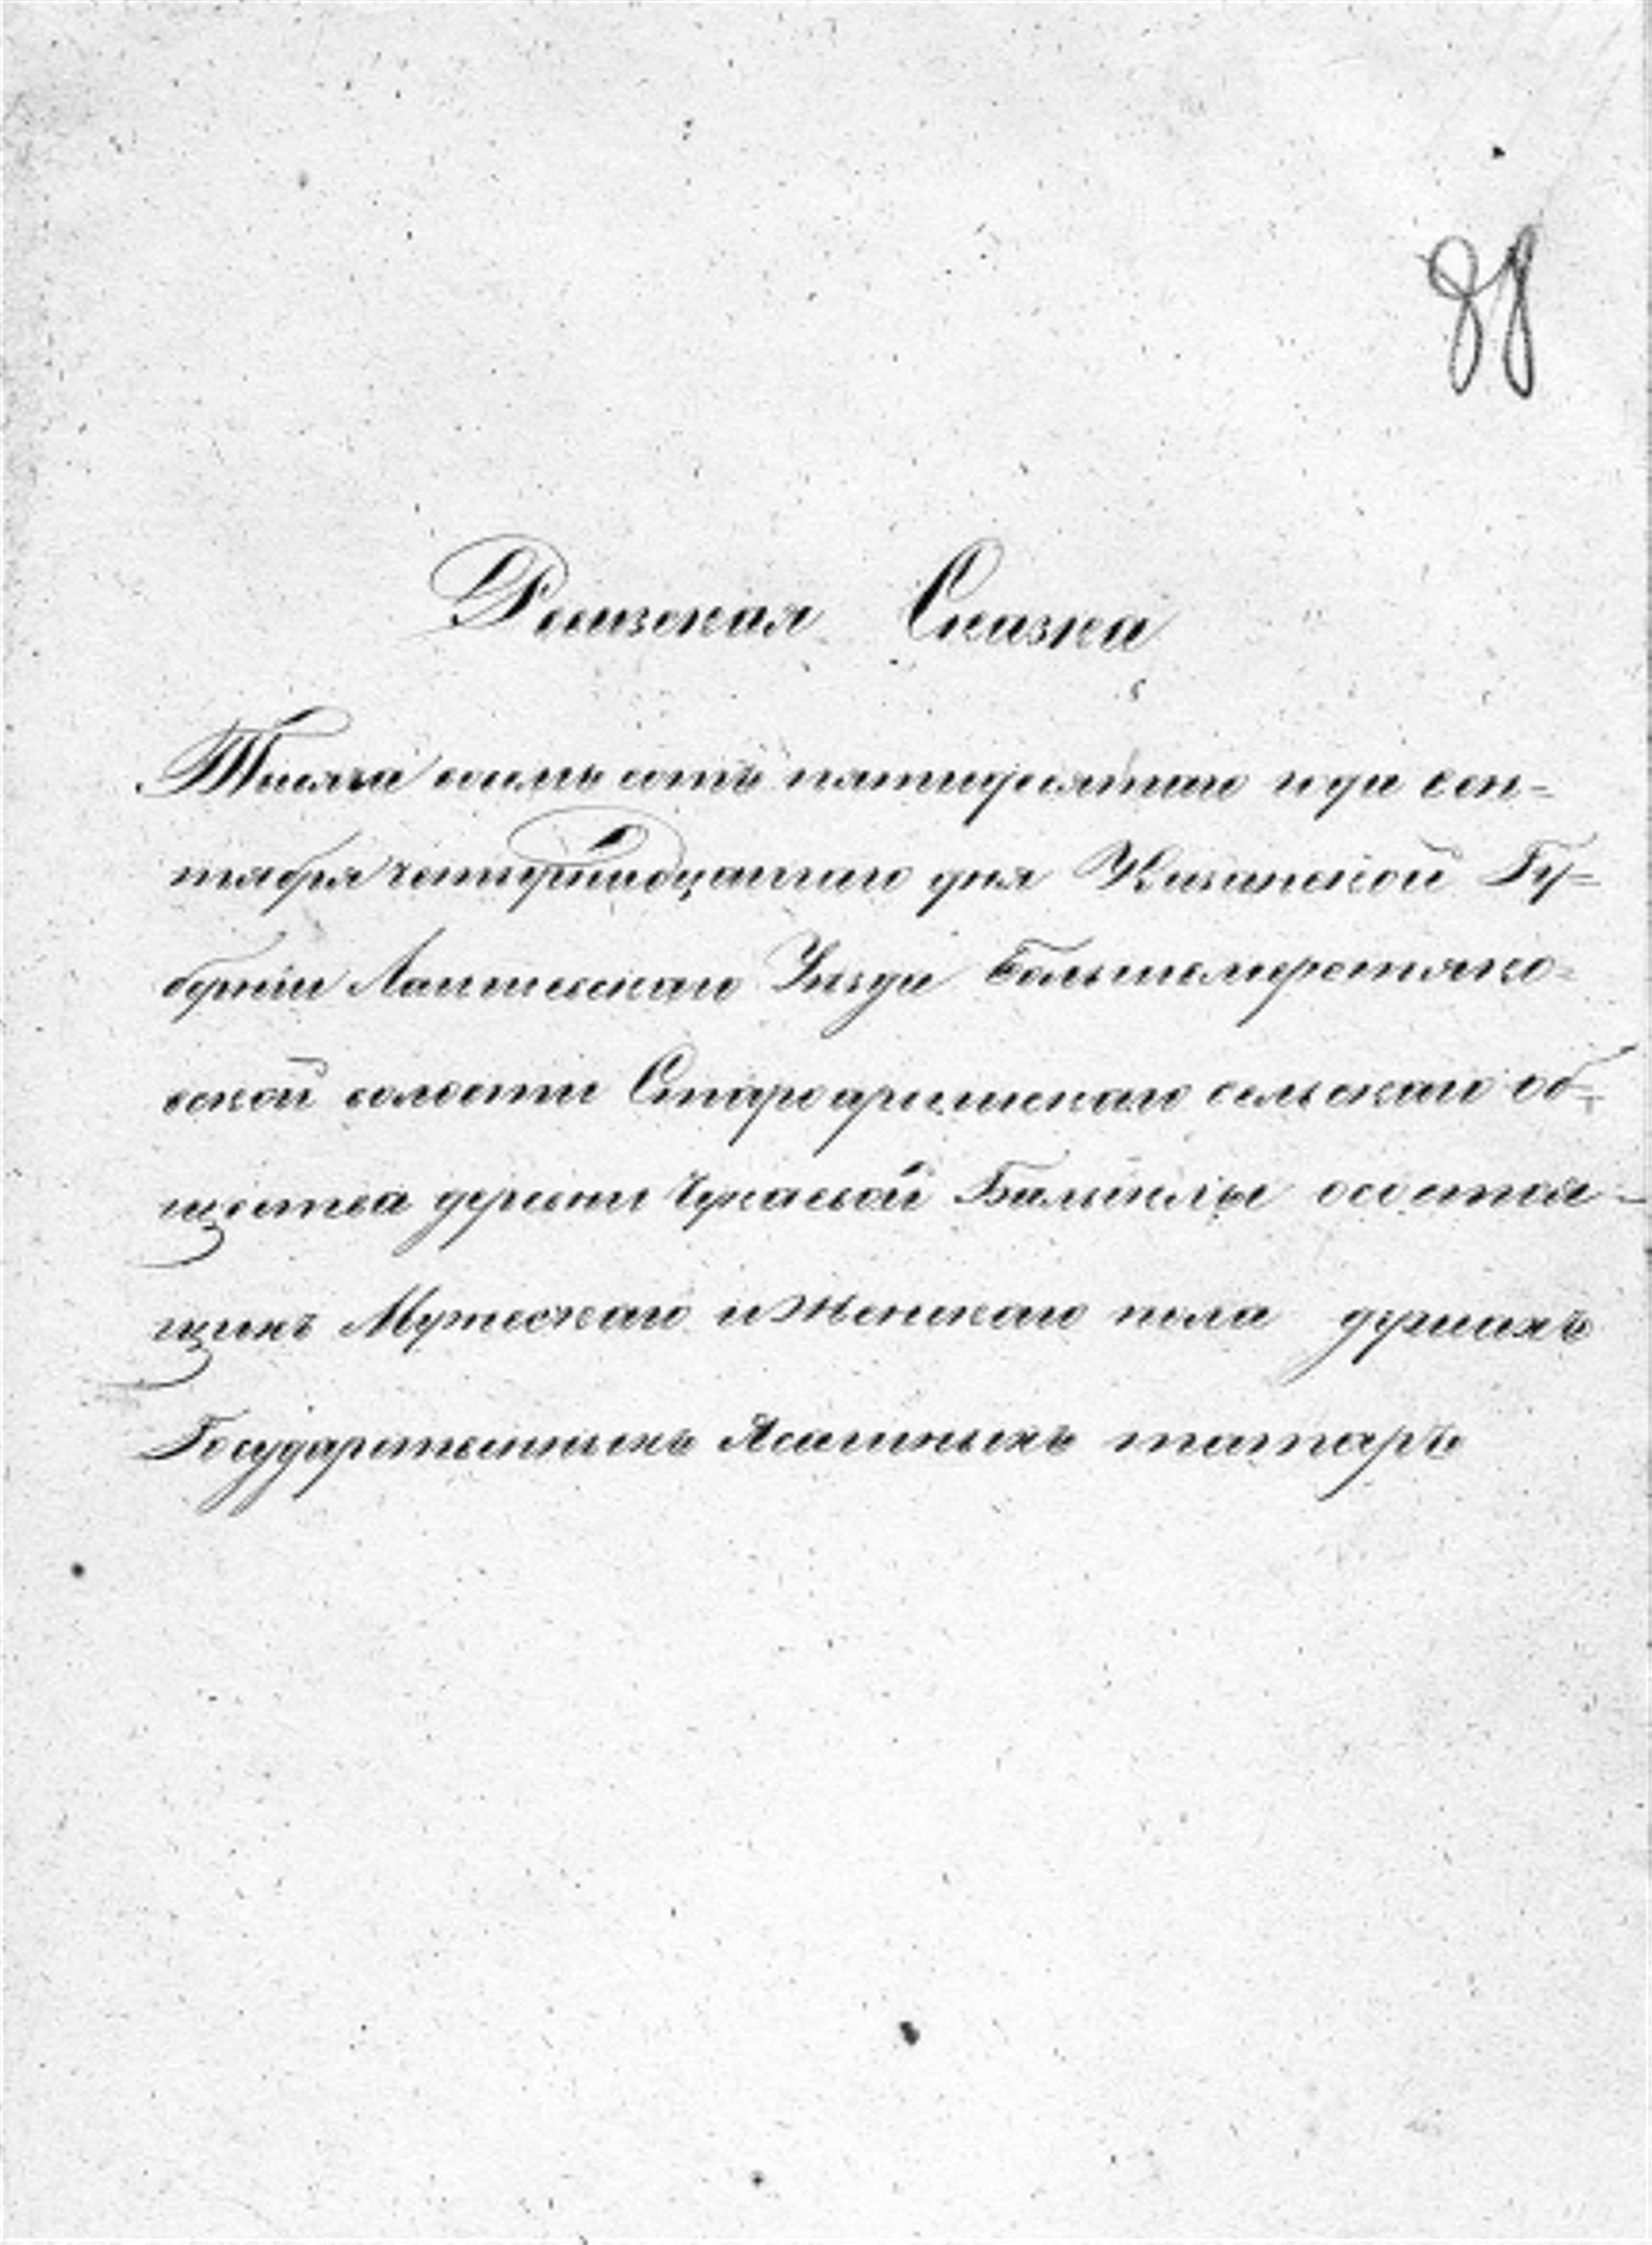 88
Ревизская Сказка
Тысяча восемь сотъ пятидесятаго года сен=
тября четырнадцатаго дня Казанской Гу=
берніи Лаишевскаго Уѣзда Большемеретяко=
вской волости Староарышскаго сельскаго об=
щества деревни Чукаевой Бимъ о состоя=
щихъ Мужескаго и Женскаго пола душахъ
Государственныхъ Ясашныхъ татаръ